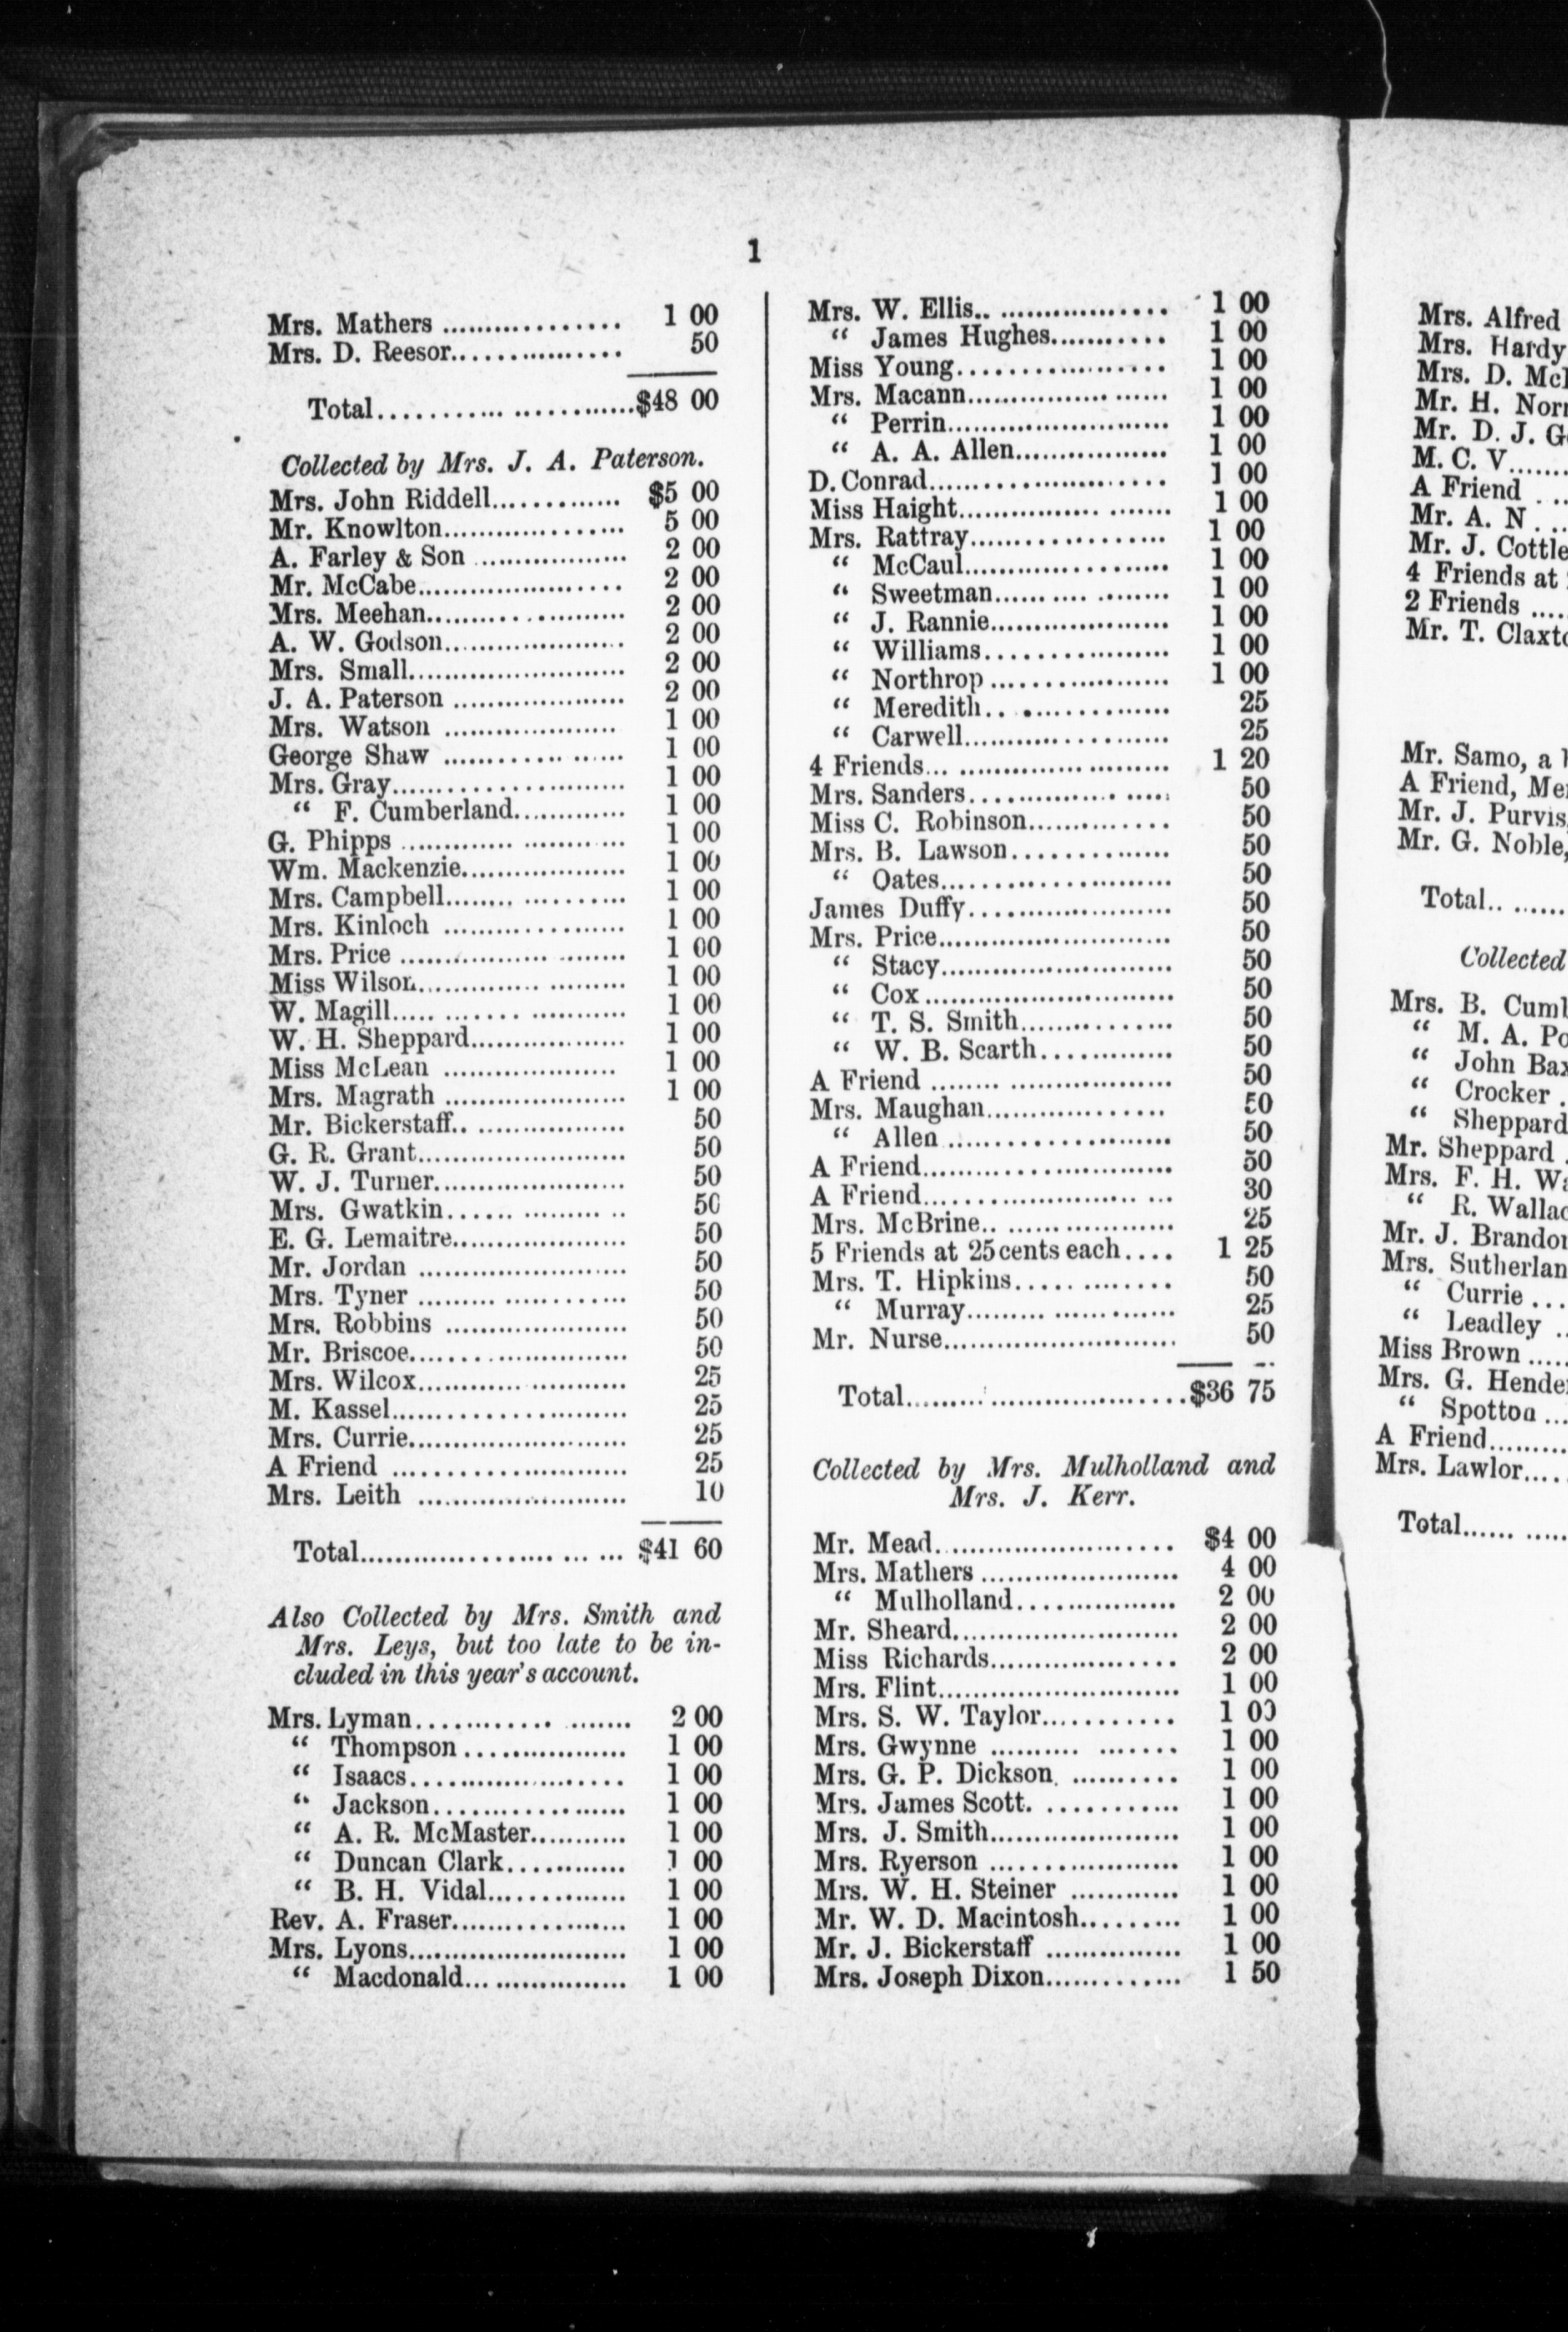 1
Mrs. Mathers ................. 1 00
Mrs. D. Reesor................. 50
Total..........................$48 00
Collected by Mrs. J. A. Paterson.
Mrs. John Riddell............. $5 00
Mr. Knowlton................... 5 00
A. Farley & Son ................. 2 00
Mr. McCabe...................... 2 00
Mrs. Meehan..................... 2 00
A. W. Godson.................... 2 00
Mrs. Small........................ 2 00
J. A. Paterson .................... 2 00
Mrs. Watson .................... 1 00
George Shaw .................... 1 00
Mrs. Gray......................... 1 00
“ F. Cumberland............. 1 00
G. Phipps ......................... 1 00
Wm. Mackenzie.................. 1 00
Mrs. Campbell.................... 1 00
Mrs. Kinloch .................... 1 00
Mrs. Price ......................... 1 00
Miss Wilson....................... 1 00
W. Magill.......................... 1 00
W. H. Sheppard.................. 1 00
Miss McLean .................... 1 00
Mrs. Magrath .................... 1 00
Mr. Bickerstaff................... 50
G. R. Grant........................ 50
W. J. Turner...................... 50
Mrs. Gwatkin.................... 50
E. G. Lemaitre.................... 50
Mr. Jordan ........................ 50
Mrs. Tyner ........................ 50
Mrs. Robbins ..................... 50
Mr. Briscoe........................ 50
Mrs. Wilcox....................... 25
M. Kassel.......................... 25
Mrs. Currie........................ 25
A Friend .......................... 25
Mrs. Leith ........................ 10
Total.............................. $41 60
Also Collected by Mrs. Smith and
Mrs. Leys, but too late to be in-
cluded in this year's account.
Mrs. Lyman....................... 2 00
“ Thompson.................. 1 00
“ Isaacs....................... 1 00
“ Jackson.................... 1 00
“ A. R. McMaster........... 1 00
“ Duncan Clark............ 1 00
“ B. H. Vidal.............. 1 00
Rev. A. Fraser................... 1 00
Mrs. Lyons........................ 1 00
“ Macdonald.................. 1 00
Mrs. W. Ellis................... 1 00
“ James Hughes........... 1 00
Miss Young...................... 1 00
Mrs. Macann..................... 1 00
“ Perrin........................ 1 00
“ A. A. Allen................. 1 00
D. Conrad......................... 1 00
Miss Haight...................... 1 00
Mrs. Rattray..................... 1 00
“ McCaul..................... 1 00
“ Sweetman.................. 1 00
“ J. Rannie................... 1 00
“ Williams................... 1 00
“ Northrop ................... 1 00
“ Meredith................... 25
“ Carwell..................... 25
4 Friends........................... 1 20
Mrs. Sanders..................... 50
Miss C. Robinson............... 50
Mrs. B. Lawson.................. 50
“ Oates........................ 50
James Duffy...................... 50
Mrs. Price......................... 50
“ Stacy........................ 50
“ Cox.......................... 50
“ T. S. Smith................ 50
“ W. B. Scarth.............. 50
A Friend .......................... 50
Mrs. Maughan................... 50
“ Allen ........................ 50
A Friend........................... 50
A Friend........................... 30
Mrs. McBrine.................... 25
5 Friends at 25 cents each.... 1 25
Mrs. T. Hipkins................. 50
“ Murray..................... 25
Mr. Nurse......................... 50
Total..............................$36 75
Collected by Mrs. Mulholland and
Mrs. J. Kerr.
Mr. Mead......................... $4 00
Mrs. Mathers ...................... 4 00
“ Mulholland................. 2 00
Mr. Sheard........................ 2 00
Miss Richards................... 2 00
Mrs. Flint......................... 1 00
Mrs. S. W. Taylor............ 1 00
Mrs. Gwynne .................. 1 00
Mrs. G. P. Dickson........... 1 00
Mrs. James Scott............. 1 00
Mrs. J. Smith.................... 1 00
Mrs. Ryerson .................... 1 00
Mrs. W. H. Steiner ............ 1 00
Mr. W. D. Macintosh......... 1 00
Mr. J. Bickerstaff ............... 1 00
Mrs. Joseph Dixon............. 1 50
Mrs. Alfred
Mrs. Hardy
Mrs. D.
Mr. H.
Mr. D. J.
M. C. V.......
A Friend ...
Mr. A. N ...
Mr. J. Cottle
4 Friends at
2 Friends ....
Mr. T.
Mr. Samo, a
A Friend,
Mr. J. Purvis,
Mr. G. Noble,
Total.. ......
Collected
Mrs. B.
“ M. A.
“ John
“ Crocker .
“ Sheppard
Mr. Sheppard .
Mrs. F. H.
“ R.
Mr. J.
Mrs.
“ Currie ...
“ Leadley ..
Miss Brown .....
Mrs. G.
“ Spotton ...
A Friend.........
Mrs. Lawlor....
Total...........